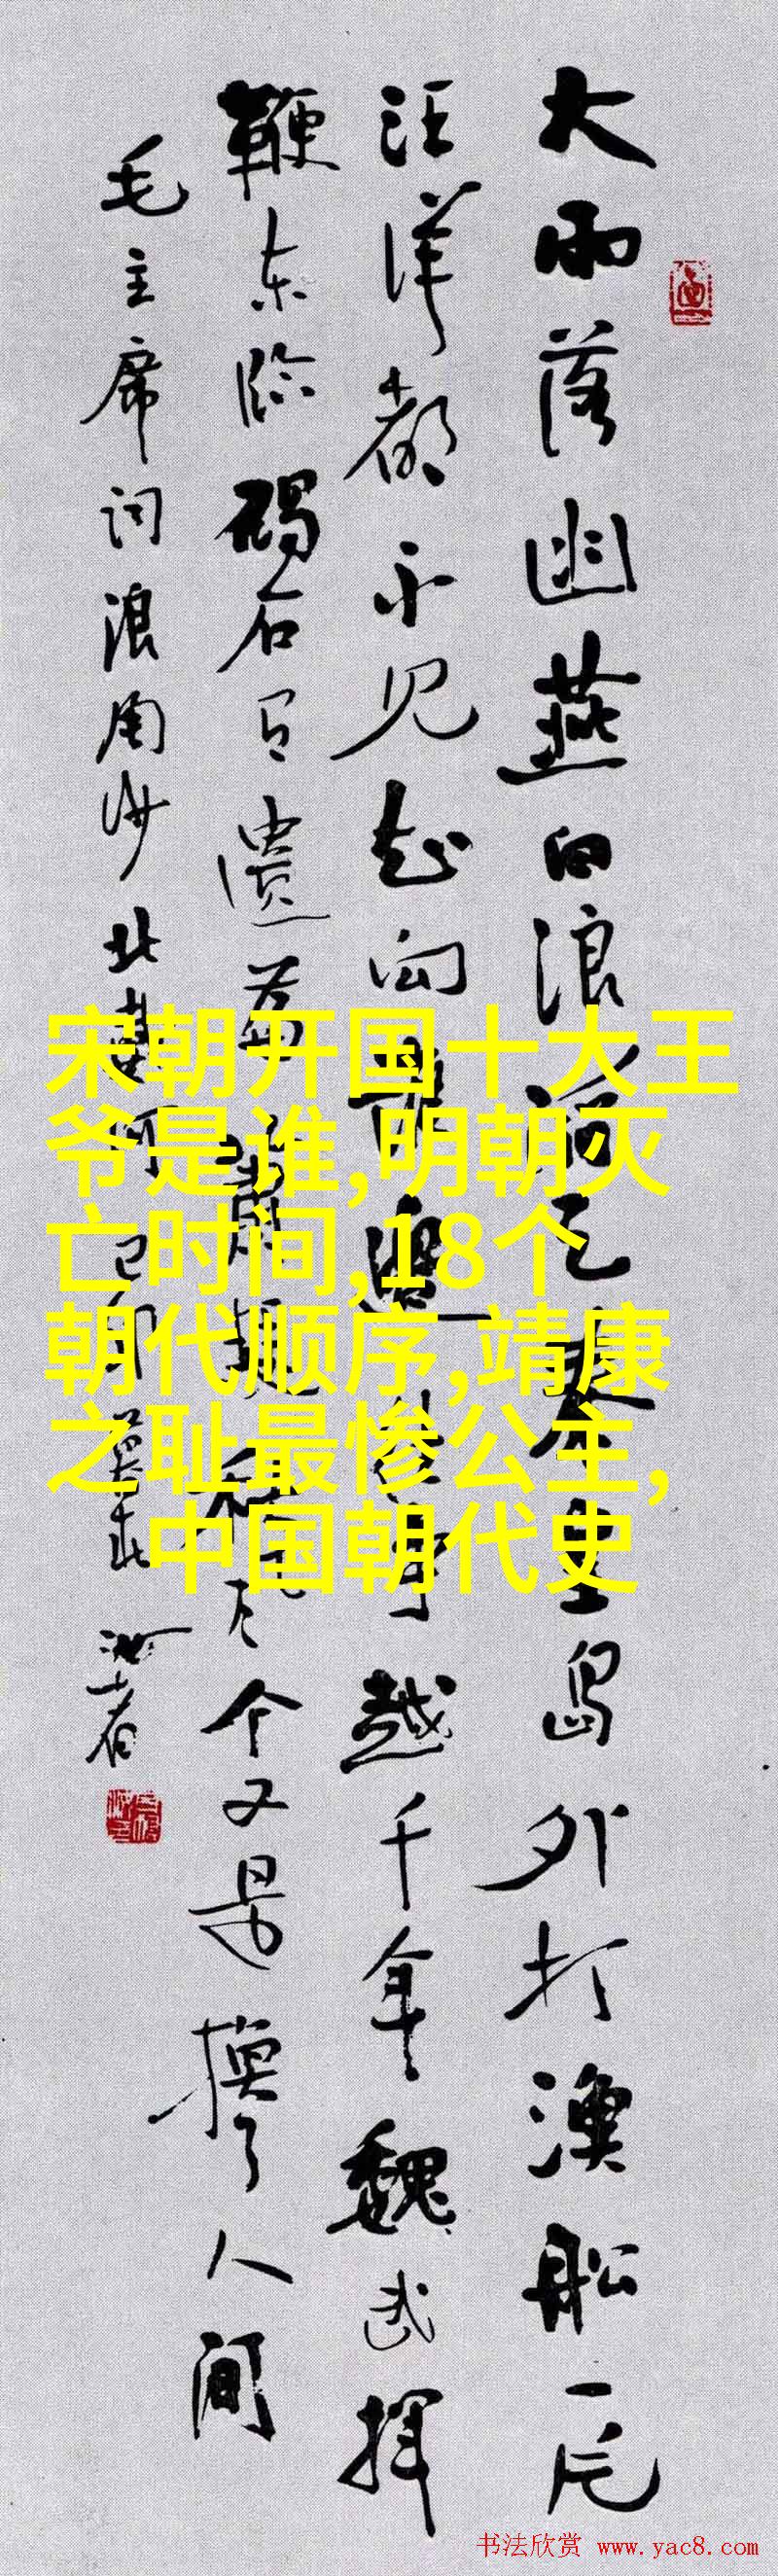 大雨落幽燕白浪滔天秦皇岛外打漁船一片
汪洋都不见知向谁邊往事越千年魏武挥
鞭东临碣石有遗篇萧瑟秋风今又是换了人间
毛主席词浪淘沙北戴河
宋朝开国十大王
爷是谁,明朝灭
亡时间,18个
朝代顺序,靖康
之耻最惨公主,
中国朝代史
书法欣赏 www.yac8.com